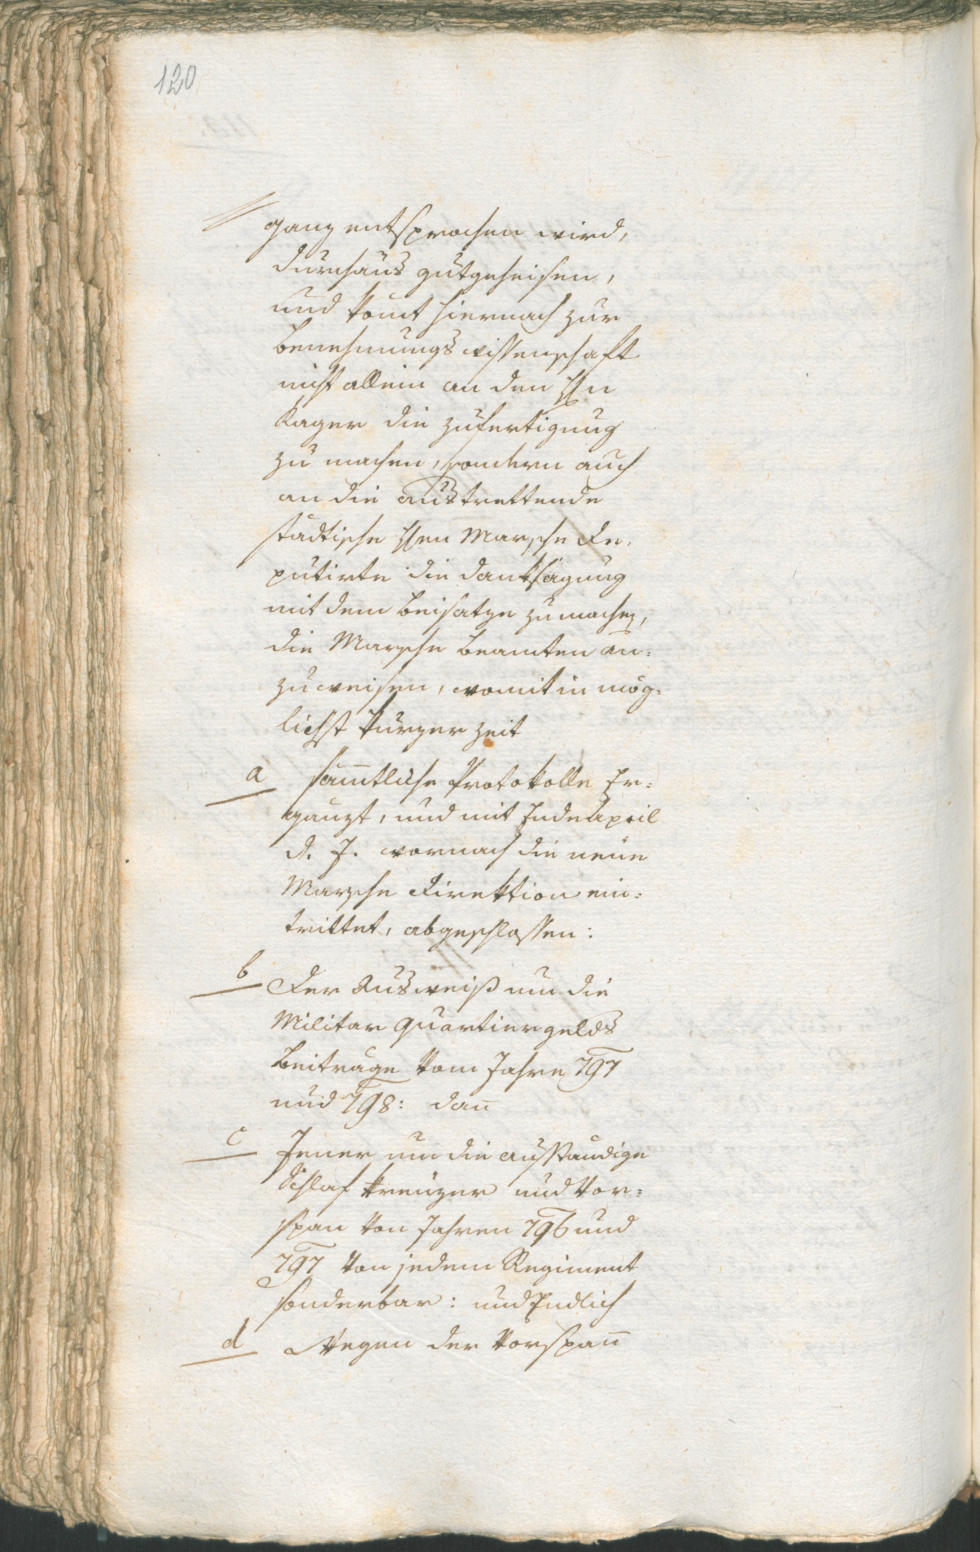 120
ganz entsprochen wird,
durchaus gutgeheisen,
und komt hiernach zur
Benehmungswissenschaft
nicht allein an den Hn
Kager die Zufertigung
zu machen, sondern auch
an die austrettende
städtische Hen Marsche De-
putirte die Danksagung
mit dem Beisatze zu machen,
die Marsche Beamten an:
zuweisen, womit in mög-
lichst kurzer Zeit
a sämtliche Protokolle Er:
gänzt, und mit Ende April
d. J. wornach die neue
Marsche Direktion ein:
trittet, abgeschlossen:
b Der Ausweiß um die
Militar Quartiergelds
Beitrage vom Jahre 797
und 798: dan
c Jener um die ausständige
Schlaf kreuzer und Vor:
span von Jahren 796 und
797 von jedem Regiment
sonderbar: und Endlich
d Wegen der Vorspan